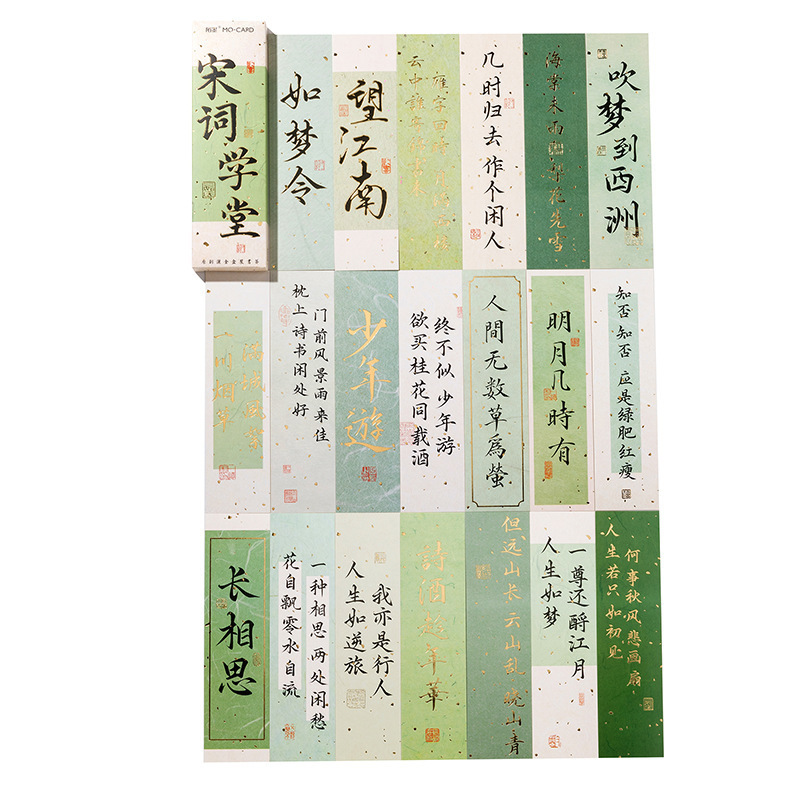 MO·CARD
宋词学堂
如梦令
望江南
云中誰寄錦書來
雁字回時 月滿西樓
几时归去 作个闲人
海棠未雨 梨花先雪
吹梦到西洲
一川烟草
满城风絮
枕上诗书闲处好
门前风景雨来佳
少年遊
欲买桂花同载酒
终不似 少年游
人間无数草為螢
明月几時有
知否 知否 应是绿肥红瘦
长相思
花自飘零水自流
一种相思 两处闲愁
人生如逆旅
我亦是行人
詩酒趁年華
但远山长 云山乱 晓山青
人生如梦
一尊还酹江月
人生若只如初见
何事秋风悲画扇